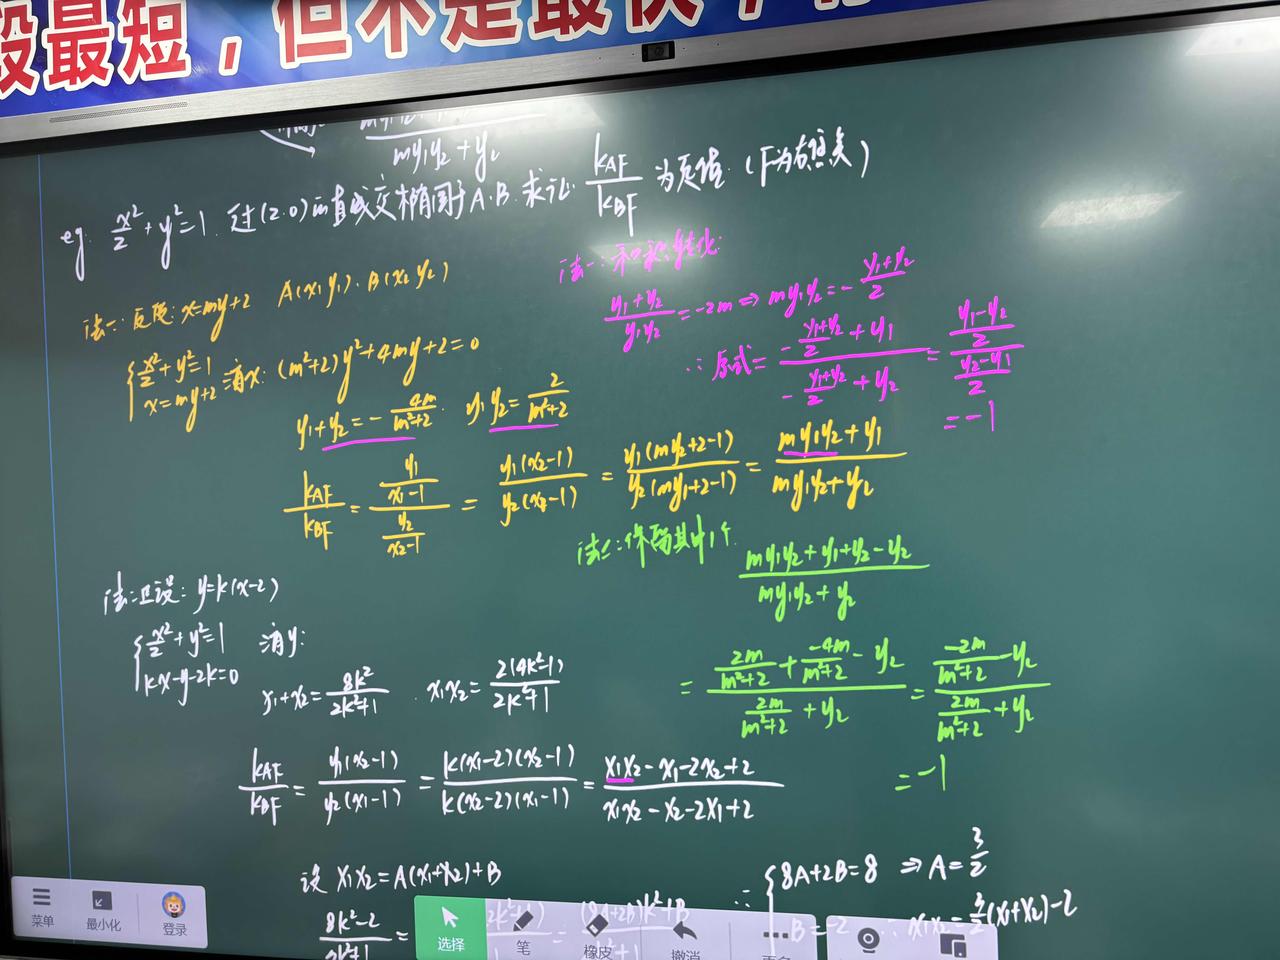 最短，但不是最快，
my₁y₂+y₂
eg. x²/2+y²=1. 过(2,0)的直线交椭圆于A.B. 求证: k_AF/k_BF 为定值. (F为右焦点)
法一: 反设: x=my+2 A(x₁ y₁). B(x₂ y₂)
{x²/2+y²=1
x=my+2 消x: (m²+2)y²+4my+2=0
y₁+y₂=-4m/(m²+2) y₁y₂=2/(m²+2)
k_AF/k_BF=(y₁/(x₁-1))/(y₂/(x₂-1))=y₁(x₂-1)/y₂(x₁-1)=y₁(my₂+2-1)/y₂(my₁+2-1)=(my₁y₂+y₁)/(my₁y₂+y₂)
法一: 和积转化:
(y₁+y₂)/(y₁y₂)=-2m⇒my₁y₂=-(y₁+y₂)/2
∴原式=(-(y₁+y₂)/2+y₁)/(-(y₁+y₂)/2+y₂)=((y₁-y₂)/2)/((y₂-y₁)/2)
=-1
法二: 保留其中1个
(my₁y₂+y₁+y₂-y₂)/(my₁y₂+y₂)
=(2m/(m²+2)+(-4m)/(m²+2)-y₂)/(2m/(m²+2)+y₂)=((-2m)/(m²+2)-y₂)/(2m/(m²+2)+y₂)
=-1
法二: 正设: y=k(x-2)
{x²/2+y²=1
kx-y-2k=0 消y:
x₁+x₂=8k²/(2k²+1). x₁x₂=2(4k²-1)/(2k²+1)
k_AF/k_BF=y₁(x₂-1)/y₂(x₁-1)=k(x₁-2)(x₂-1)/k(x₂-2)(x₁-1)=(x₁x₂-x₁-2x₂+2)/(x₁x₂-x₂-2x₁+2)
设 x₁x₂=A(x₁+x₂)+B
(8k²-2)/(2k²+1)=
∴{8A+2B=8 ⇒A=3/2
B=-2 ∴x₁x₂=3/2(x₁+x₂)-2
菜单
最小化
登录
选择
笔
橡皮
撤消
更多